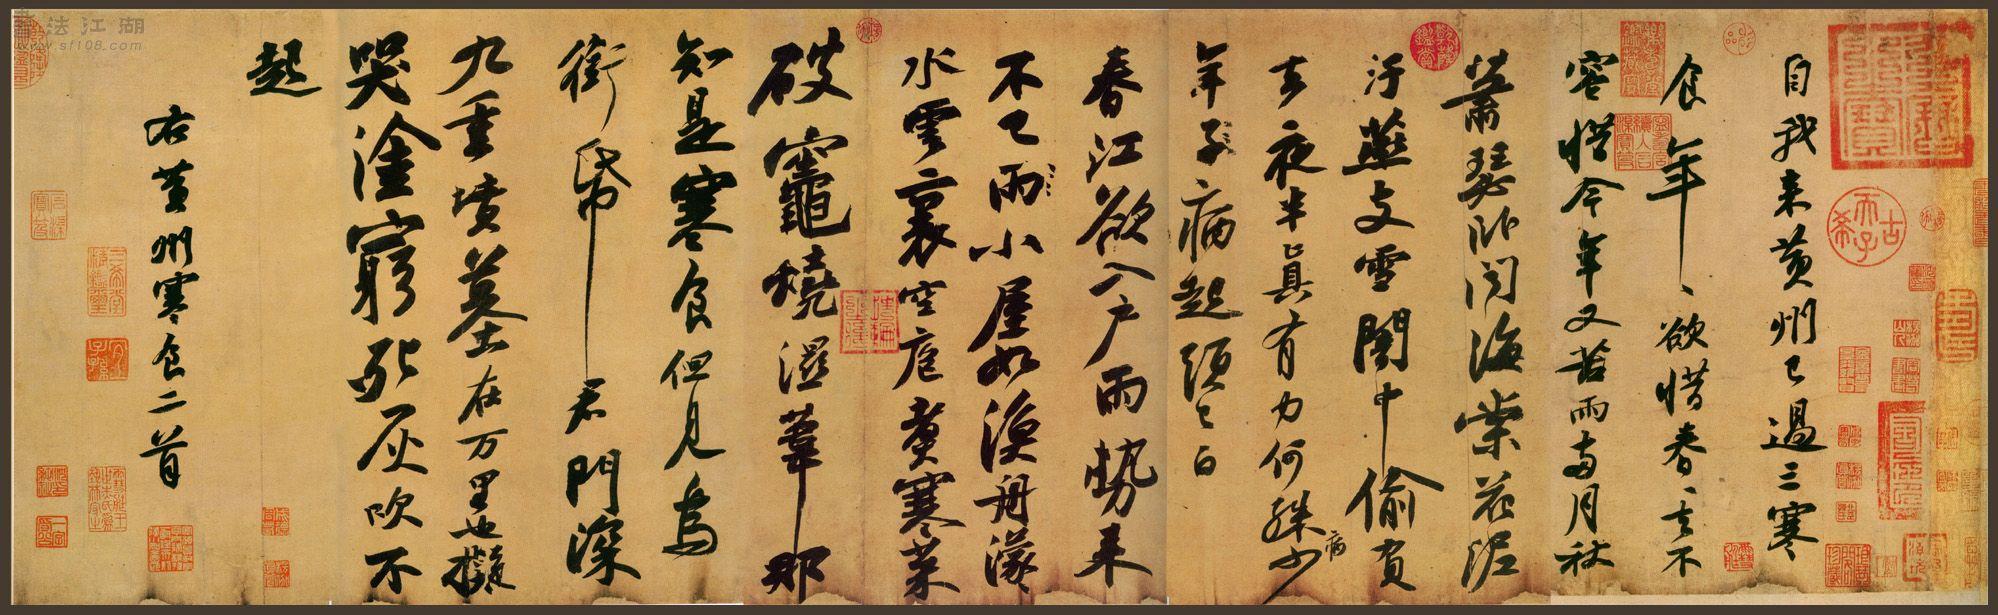 自我来黄州已過三寒
食年〻欲惜春〻去不
容惜今年又苦雨兩月秋
蕭瑟卧聞海棠花泥
汙燕支雪闇中偷負
去夜半真有力何殊少
病
年子病起頭已白
春江欲入户雨勢来
不已雨小屋如漁舟濛〻
水雲裏空庖煮寒菜
破竈燒濕葦那
知是寒食但見烏
銜帋君門深
九重墳墓在万里也擬
哭塗窮死灰吹不
起
右黄州寒食二首
古希天子
乾隆鑑賞
書法江湖
www.sf108.com